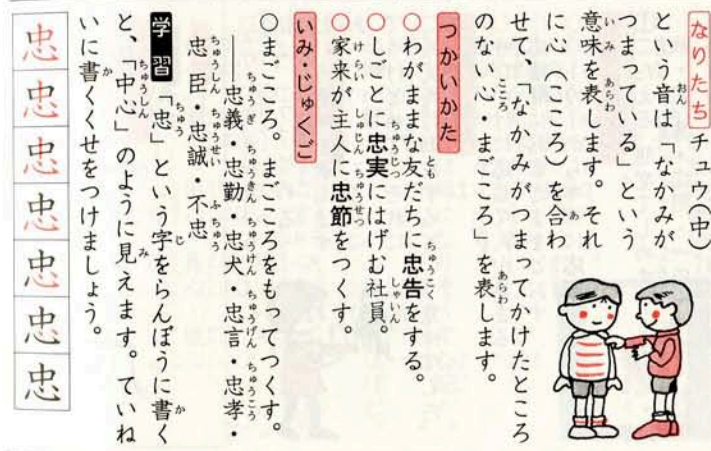 なりたち チュウ(中)
という音は「なかみが
つまっている」という
意味を表します。それ
に心(こころ)を合わ
せて、「なかみがつまってかけたところ
のない心・まごころ」を表します。
つかいかた
○わがままな友だちに忠告をする。
○しごとに忠実にはげむ社員。
○家来が主人に忠節をつくす。
いみ・じゅくご
○まごころ。まごころをもってつくす。
――忠義・忠勤・忠犬・忠言・忠孝・
忠臣・忠誠・不忠
学習 「忠」という字をらんぼうに書く
と、「中心」のように見えます。ていね
いに書くくせをつけましょう。
忠忠忠忠忠忠忠